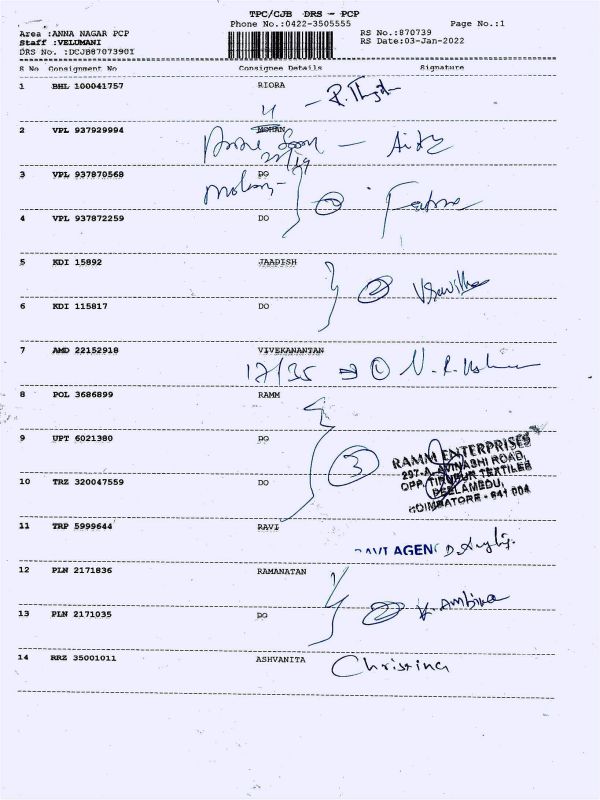 TPC/CJB DRS - PCP
Phone No.:0422-3505555 Page No.:1
Area :ANNA NAGAR PCP RS No.:870739
Staff :VELUMANI RS Date:03-Jan-2022
DRS No. :DCJB87073901
S No Consignment No Consignee Details Signature
1 BHL 100041757 RIORA
2 VPL 937929994 MOHAN
3 VPL 937870568 DO
4 VPL 937872259 DO
5 KDI 15892 JAADISH
2
6 KDI 115817 DO
7 AMD 22152918 VIVEKANANTAN
17/35
8 POL 3686899 RAMM
9 UPT 6021380 DO
3
RAMM ENTERPRISES
297-A, AVINASHI ROAD,
OPP. TIRUPUR TEXTILES
PEELAMEDU,
COIMBATORE - 641 004
10 TRZ 320047559 DO
11 TRP 5999644 RAVI
RAVI AGEN
12 PLN 2171836 RAMANATAN
2 K. Ambika
13 PLN 2171035 DO
14 RRZ 35001011 ASHVANITA
Christina